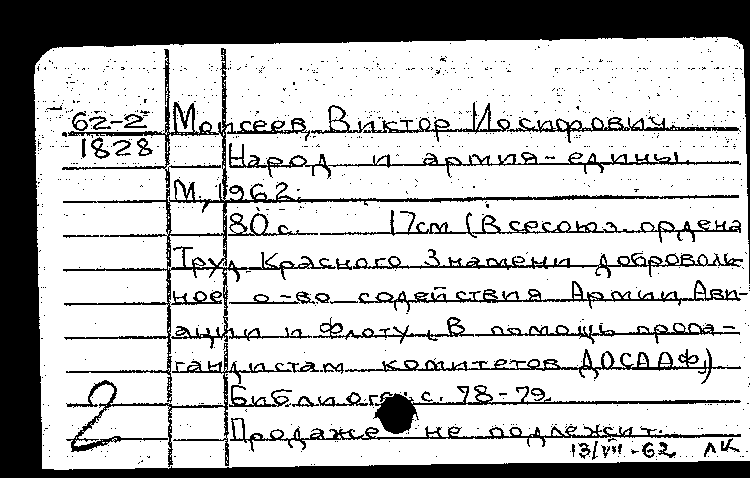 62-2
1828
Моисеев, Виктор Иосифович.
Народ и армия - едины.
М., 1962.
80 с. 17 см (Всесоюз. ордена
Труд. Красного Знамени доброволь-
ное о-во содействия Армии, Ави-
ации и Флоту. В помощь пропа-
гандистам комитетов ДОСААФ)
Библиогр.: с. 78-79.
Продаже не подлежит.
2
13/VII-62 ЛК